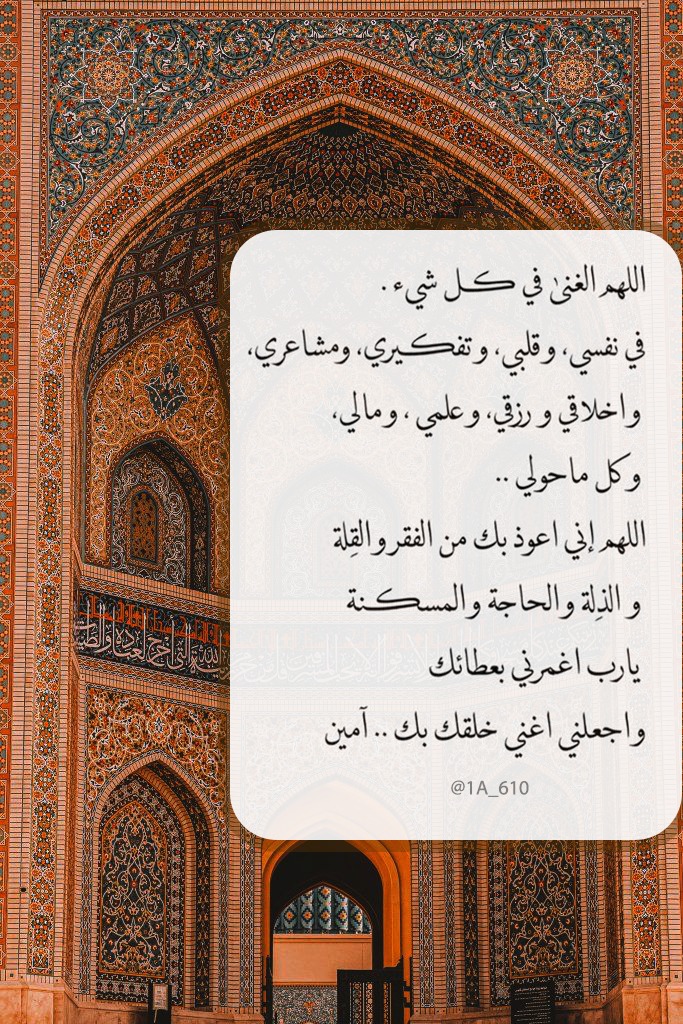 اللهم الغنىٰ في كل شيء .
في نفسي، وقلبي، وتفكيري، ومشاعري،
واخلاقي و رزقي، وعلمي ، ومالي،
وكل ماحولي ..
اللهم إني اعوذ بك من الفقر والقِلة
و الذِلة والحاجة والمسكنة
يارب اغمرني بعطائك
واجعلني اغني خلقك بك .. آمين
@1A_610